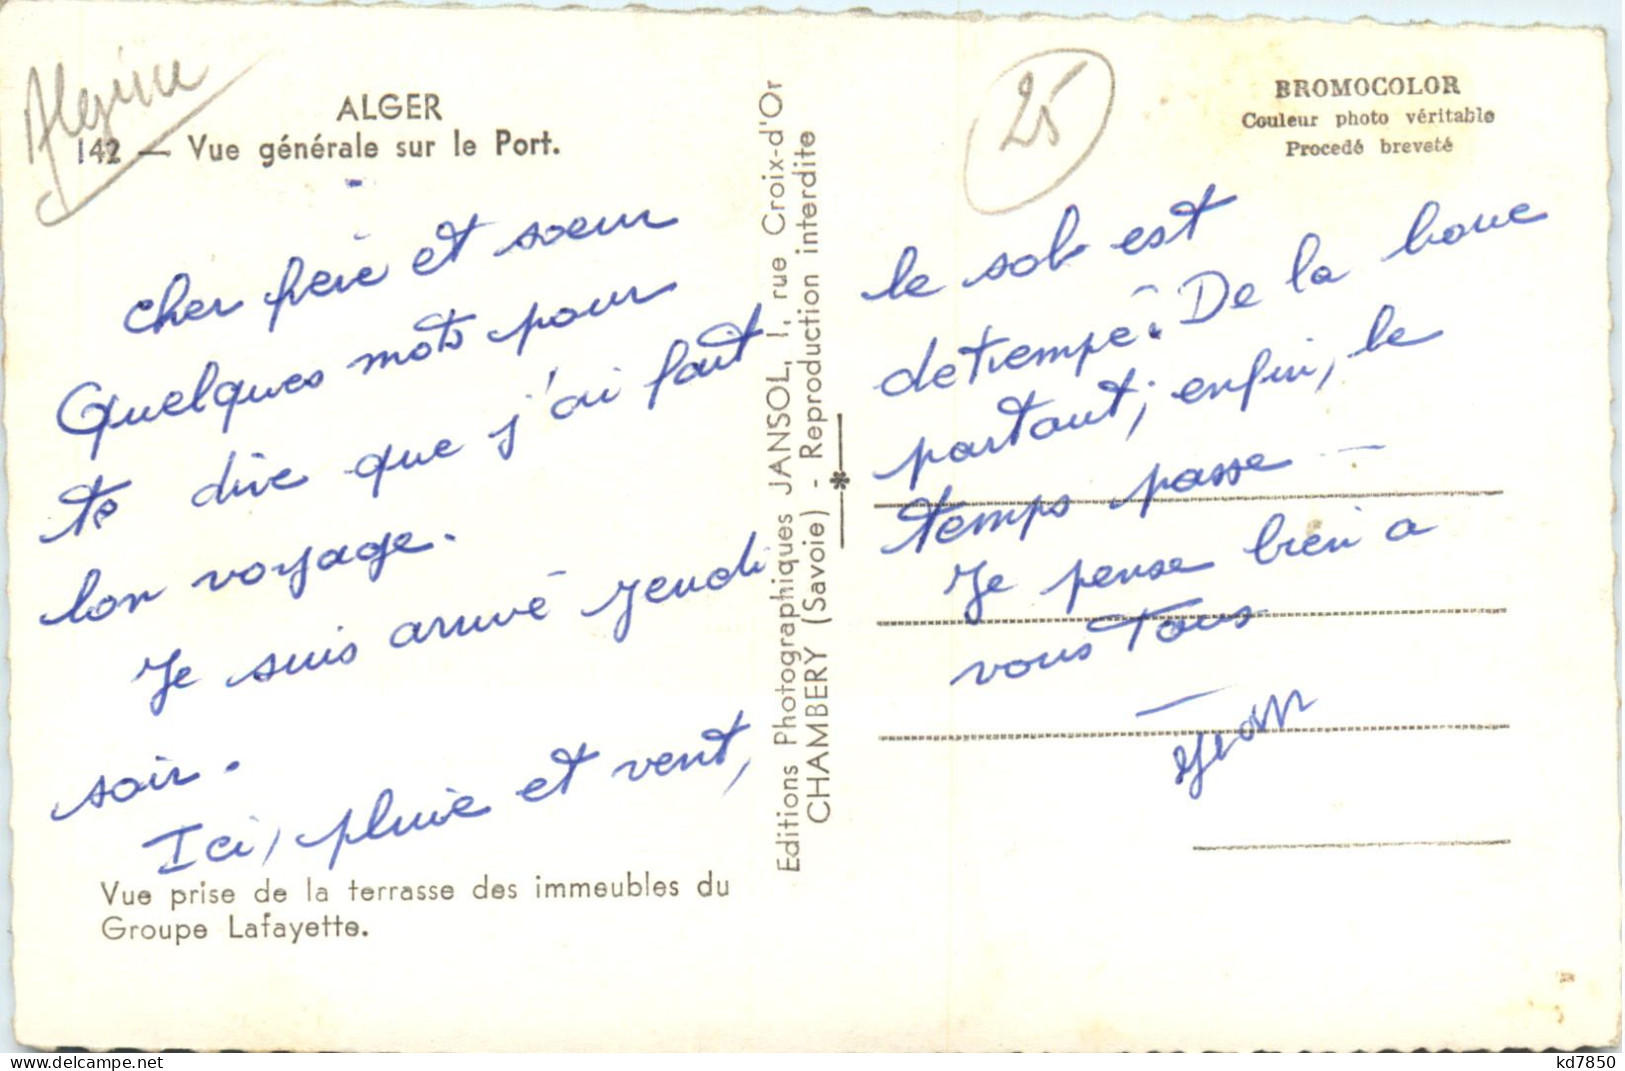 Algérie
ALGER
142 — Vue générale sur le Port.
cher frère et soeur
Quelques mots pour
te dire que j'ai fait
bon voyage.
Je suis arrivé jeudi
soir.
Ici, pluie et vent,
Vue prise de la terrasse des immeubles du
Groupe Lafayette.
Editions Photographiques JANSOL, 1, rue Croix-d'Or
CHAMBERY (Savoie) - Reproduction interdite
25
BROMOCOLOR
Couleur photo véritable
Procedé breveté
le sol est
detrempé. De la boue
partout; enfin, le
temps passe —
Je pense bien a
vous tous
Jean
delcampe.net
kd7850